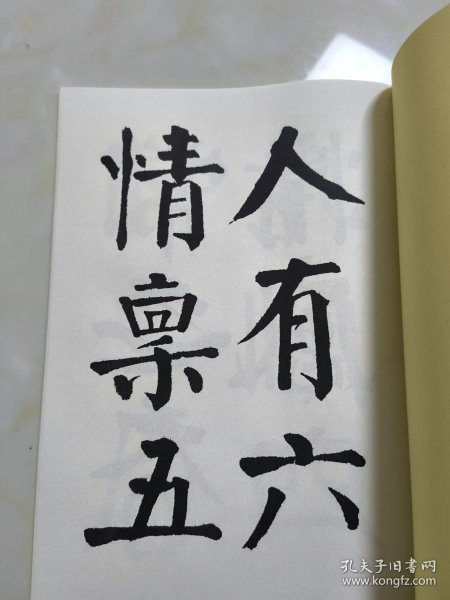 人有六
情稟五
孔夫子旧书网
www.kongfz.com